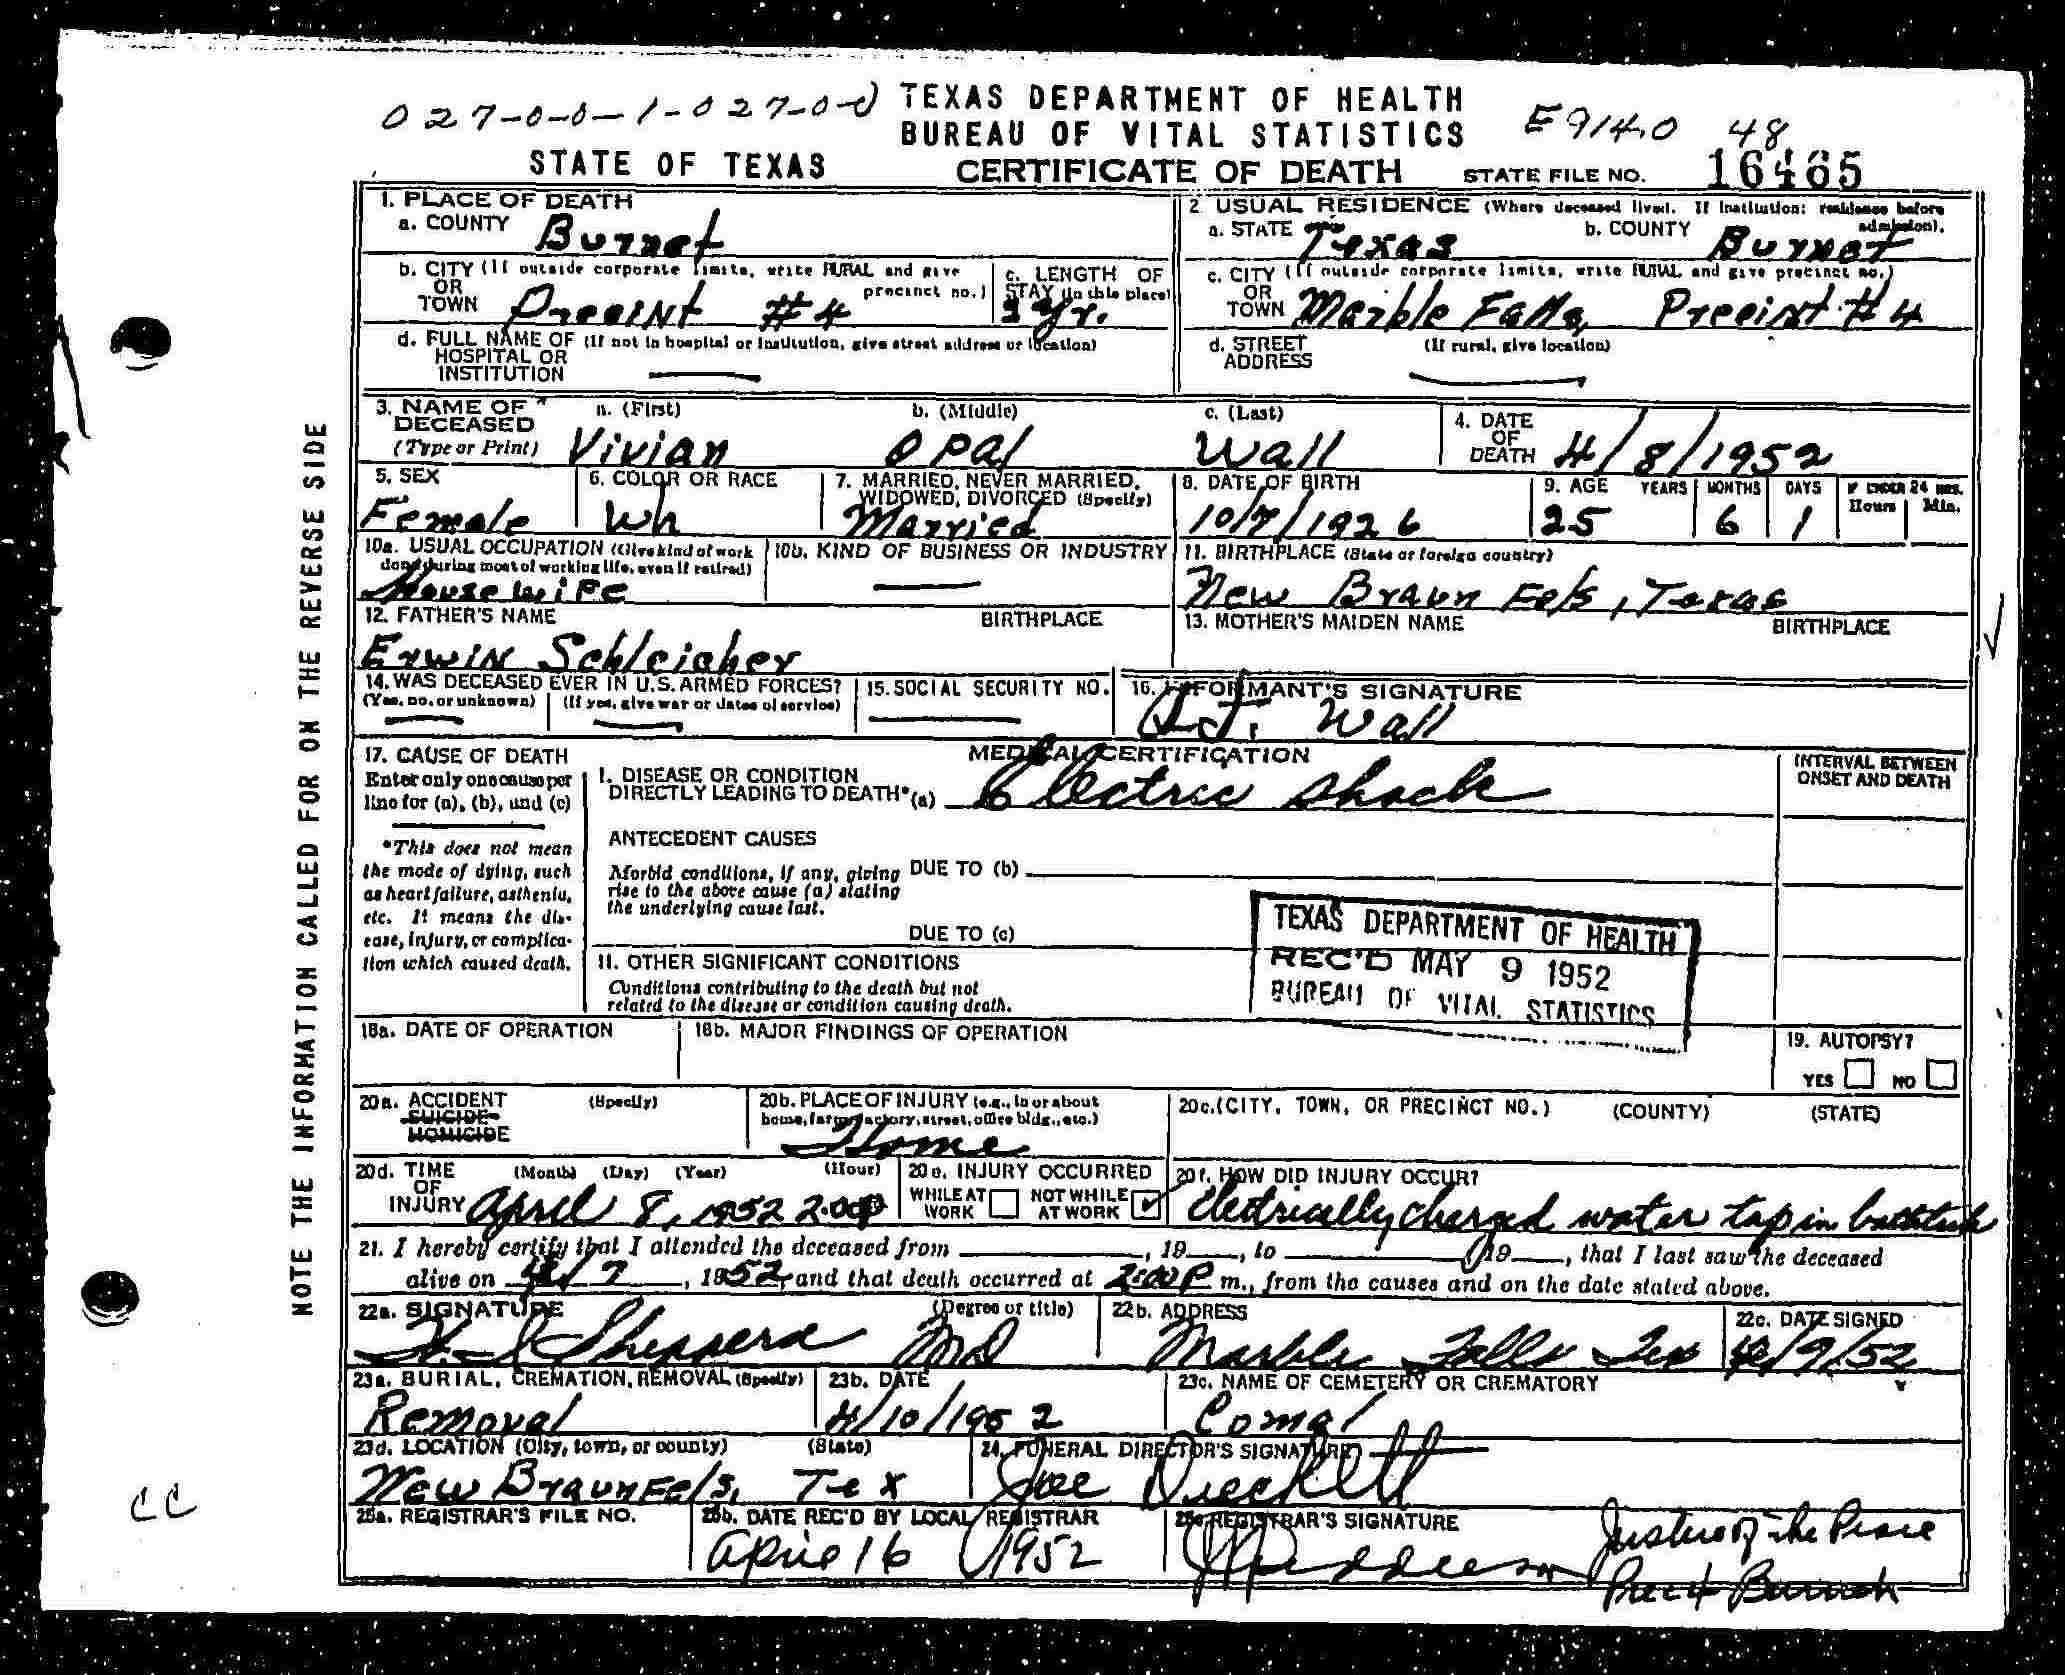 027-0-0-1-027-0-0
TEXAS DEPARTMENT OF HEALTH
BUREAU OF VITAL STATISTICS
E914.0 48
STATE OF TEXAS CERTIFICATE OF DEATH STATE FILE NO. 16465
NOTE THE INFORMATION CALLED FOR ON THE REVERSE SIDE
1. PLACE OF DEATH
a. COUNTY Burnet
2. USUAL RESIDENCE (Where deceased lived. If institution: residence before admission).
a. STATE Texas b. COUNTY Burnet
b. CITY (If outside corporate limits, write RURAL and give precinct no.)
OR
TOWN Precint #4
c. LENGTH OF
STAY (in this place)
Yr.
c. CITY (If outside corporate limits, write RURAL and give precinct no.)
OR
TOWN Marble Falls, Precint #4
d. FULL NAME OF (If not in hospital or institution, give street address or location)
HOSPITAL OR
INSTITUTION
d. STREET (If rural, give location)
ADDRESS
3. NAME OF DECEASED (Type or Print)
a. (First) b. (Middle) c. (Last)
Vivian Opal Wall
4. DATE OF DEATH 4/8/1952
5. SEX
Female
6. COLOR OR RACE
Wh
7. MARRIED, NEVER MARRIED,
WIDOWED, DIVORCED (Specify)
Married
8. DATE OF BIRTH
10/7/1926
9. AGE YEARS MONTHS DAYS IF UNDER 24 HRS.
Hours Min.
25 6 1
10a. USUAL OCCUPATION (Give kind of work
done during most of working life, even if retired)
Housewife
10b. KIND OF BUSINESS OR INDUSTRY
11. BIRTHPLACE (State or foreign country)
New Braunfels, Texas
12. FATHER'S NAME BIRTHPLACE
Erwin Schleicher
13. MOTHER'S MAIDEN NAME BIRTHPLACE
14. WAS DECEASED EVER IN U.S. ARMED FORCES?
(Yes, no, or unknown) (If yes, give war or dates of service)
15. SOCIAL SECURITY NO.
16. INFORMANT'S SIGNATURE
Wall
17. CAUSE OF DEATH
Enter only one cause per
line for (a), (b), and (c)
*This does not mean
the mode of dying, such
as heart failure, asthenia,
etc. It means the dis-
ease, injury, or complica-
tion which caused death.
MEDICAL CERTIFICATION
I. DISEASE OR CONDITION
DIRECTLY LEADING TO DEATH*(a) Electric shock
INTERVAL BETWEEN
ONSET AND DEATH
ANTECEDENT CAUSES
Morbid conditions, if any, giving
rise to the above cause (a) stating
the underlying cause last.
DUE TO (b)
DUE TO (c)
TEXAS DEPARTMENT OF HEALTH
REC'D MAY 9 1952
BUREAU OF VITAL STATISTICS
II. OTHER SIGNIFICANT CONDITIONS
Conditions contributing to the death but not
related to the disease or condition causing death.
18a. DATE OF OPERATION
18b. MAJOR FINDINGS OF OPERATION
19. AUTOPSY?
YES NO
20a. ACCIDENT (Specify)
SUICIDE
HOMICIDE
20b. PLACE OF INJURY (e.g., in or about
home, farm, factory, street, office bldg., etc.)
Home
20c. (CITY, TOWN, OR PRECINCT NO.) (COUNTY) (STATE)
20d. TIME OF INJURY (Month) (Day) (Year) (Hour)
April 8, 1952 2:00P
20e. INJURY OCCURRED
WHILE AT WORK NOT WHILE AT WORK ✓
20f. HOW DID INJURY OCCUR?
Electrically charged water tap in bathtub
21. I hereby certify that I attended the deceased from , 19 , to , 19 , that I last saw the deceased
alive on 4/7, 1952, and that death occurred at 2:00 P m., from the causes and on the date stated above.
22a. SIGNATURE (Degree or title)
Shepperd MD
22b. ADDRESS
Marble Falls Tex
22c. DATE SIGNED
4/9/52
23a. BURIAL, CREMATION, REMOVAL (Specify)
Removal
23b. DATE
4/10/1952
23c. NAME OF CEMETERY OR CREMATORY
Comal
23d. LOCATION (City, town, or county) (State)
New Braunfels, Tex
24. FUNERAL DIRECTOR'S SIGNATURE
Joe
25a. REGISTRAR'S FILE NO.
25b. DATE REC'D BY LOCAL REGISTRAR
April 16 1952
25c. REGISTRAR'S SIGNATURE
Justice of the Peace
Prec 4
CC